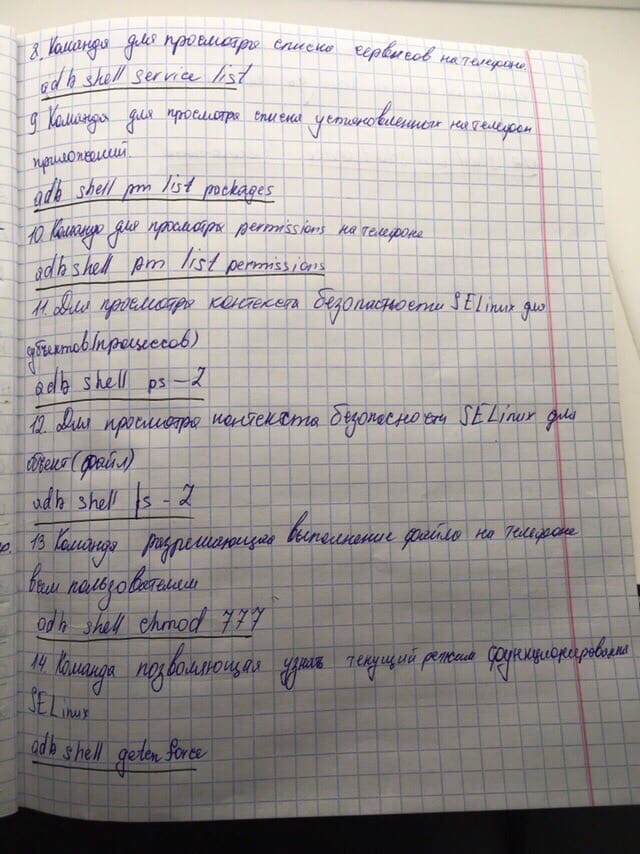 8. Команда для просмотра списка сервисов на телефоне.
adb shell service list
9 Команда для просмотра списка установленных на телефон
приложений.
adb shell pm list packages
10 Команда для просмотра permissions на телефоне
adb shell pm list permissions
11. Для просмотра контекста безопасности SELinux для
субъектов (процессов)
adb shell ps -Z
12. Для просмотра контекста безопасности SELinux для
объект (файл)
adb shell ls -Z
13 Команда разрешающая выполнение файла на телефоне
всем пользователем
adb shell chmod 777
14. Команда позволяющая узнать текущий режим функционирования
SELinux
adb shell getenforce